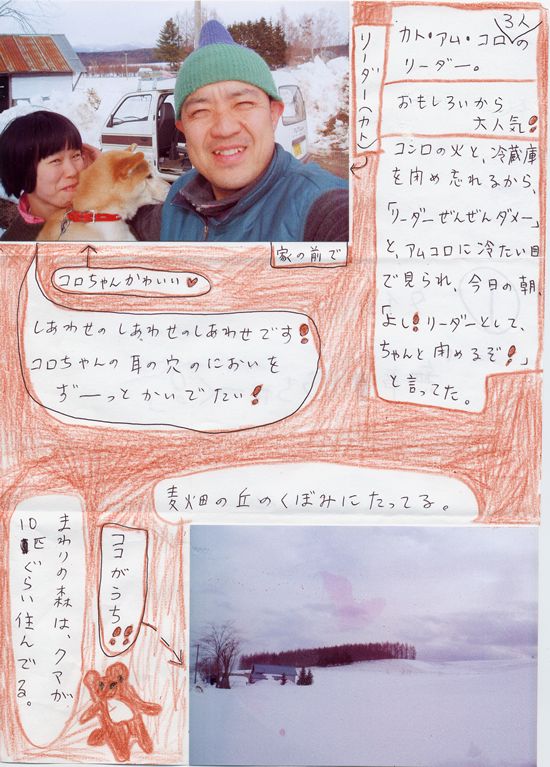 カト・アム・コロの
3人
リーダー。
おもしろいから
大人気!
リーダー(カト)
コンロの火と、冷蔵庫
を閉め忘れるから、
「リーダーぜんぜんダメー」
と、アムコロに冷たい目
で見られ、今日の朝、
「よし!リーダーとして、
ちゃんと閉めるぞ!」
と言ってた。
家の前で
コロちゃんかわいい♥
しあわせのしあわせのしあわせです!
コロちゃんの耳の穴のにおいを
ずーっとかいでたい!
麦畑の丘のくぼみにたってる。
ココがうち!!
まわりの森は、クマが
10匹ぐらい住んでる。